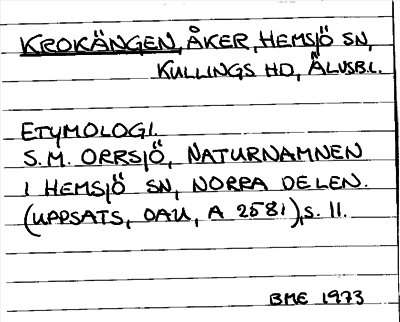 KROKÄNGEN, ÅKER, HEMSJÖ SN,
KULLINGS HD, ÄLVSB.L.
ETYMOLOGI.
S.M. ORRSJÖ, NATURNAMNEN
I HEMSJÖ SN, NORRA DELEN.
(UPPSATS, OAU, A 2581), S. 11.
BME 1973